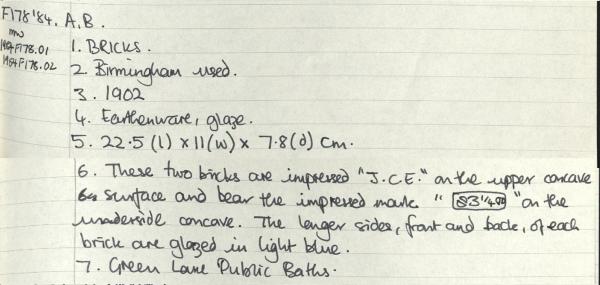 F178'84. A.B.
now
1984F178.01
1984F178.02
1. BRICKS.
2. Birmingham used.
3. 1902
4. Earthenware, glaze.
5. 22.5 (l) x 11 (w) x 7.8 (d) cm.
6. These two bricks are impressed "J.C.E." on the upper concave
surface and bear the impressed mark " " on the
underside concave. The longer sides, front and back, of each
brick are glazed in light blue.
7. Green Lane Public Baths.